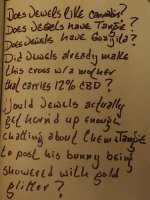 Does Jewels like Cannabis?
Does Jewels have Tangie?
Does Jewels have Guajita?
Did Jewels already make
this cross w/a mother
that carries 12% CBD?
Would Jewels actually
get horn'd up enough
chatting about Chem Tangie
to post his bunny being
showered with gold
glitter?